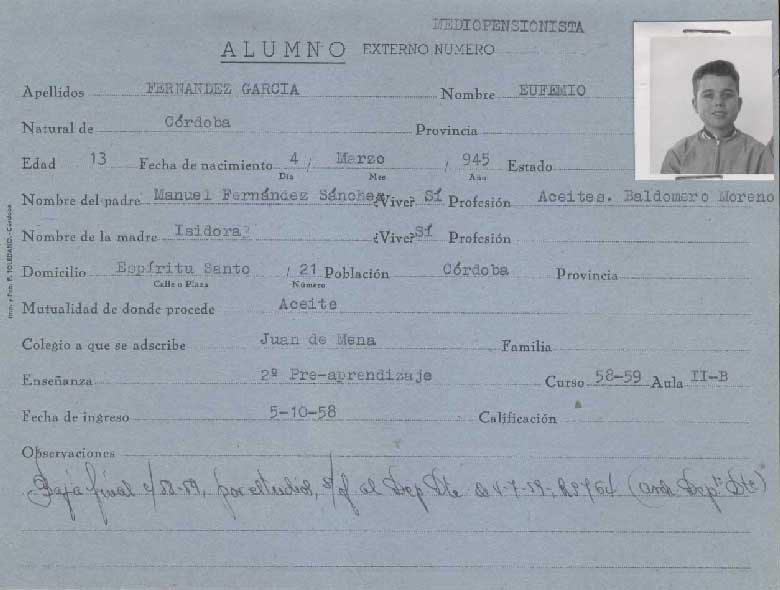 MEDIOPENSIONISTA
ALUMNO EXTERNO NUMERO
Apellidos FERNANDEZ GARCIA Nombre EUFEMIO
Natural de Córdoba Provincia
Edad 13 Fecha de nacimiento 4 / Marzo / 945 Estado
Día Mes Año
Nombre del padre Manuel Fernández Sánchez ¿Vive? Sí Profesión Aceites. Baldomero Moreno
Nombre de la madre Isidora ¿Vive? Sí Profesión
Domicilio Espíritu Santo / 21 Población Córdoba Provincia
Calle o Plaza Número
Mutualidad de donde procede Aceite
Colegio a que se adscribe Juan de Mena Familia
Enseñanza 2º Pre-aprendizaje Curso 58-59 Aula II-B
Fecha de ingreso 5-10-58 Calificación
Observaciones
Baja final c/58-59, por estudios, s/ al Dep Dte de 4-7-59, (arch. Dpto. Dte)
Imp. y Pap. F. TOLEDANO.-Córdoba